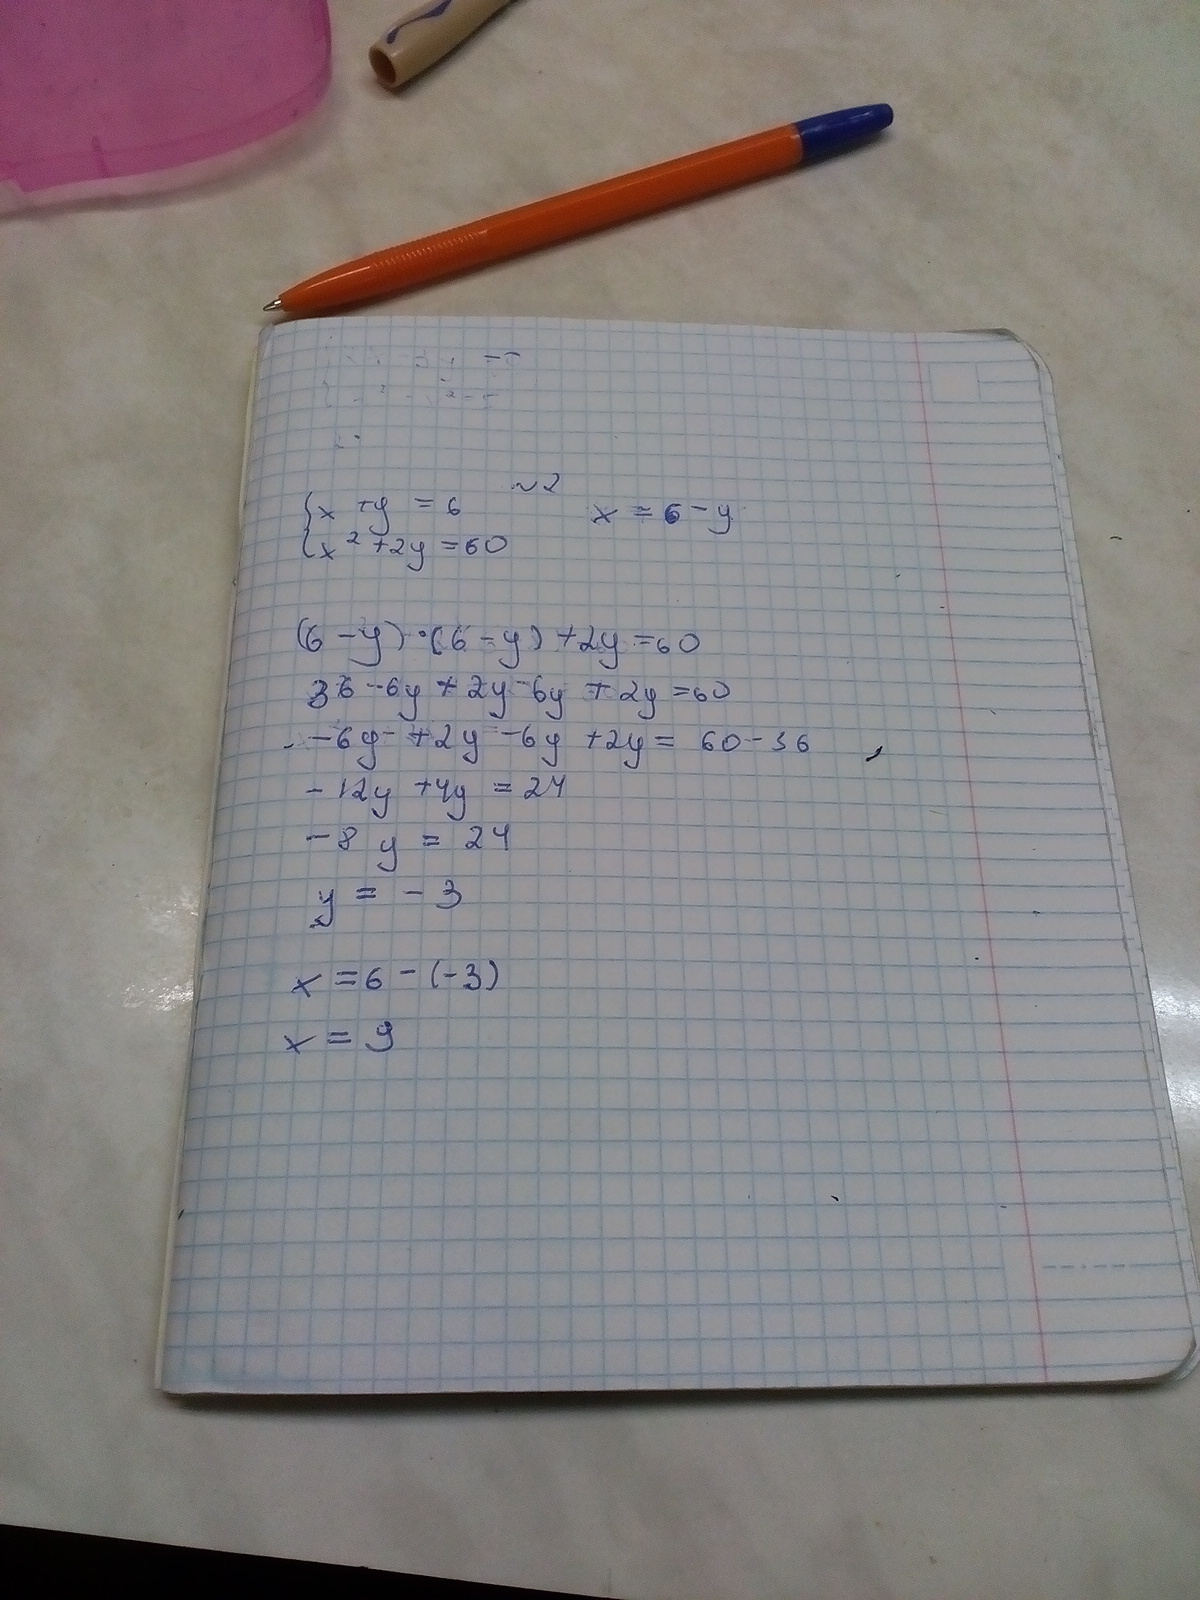 ~2
{x + y = 6 x = 6 - y
{x² + 2y = 60
(6 - y) · (6 - y) + 2y = 60
36 - 6y + 2y - 6y + 2y = 60
- 6y + 2y - 6y + 2y = 60 - 36
- 12y + 4y = 24
- 8 y = 24
y = - 3
x = 6 - (-3)
x = 9